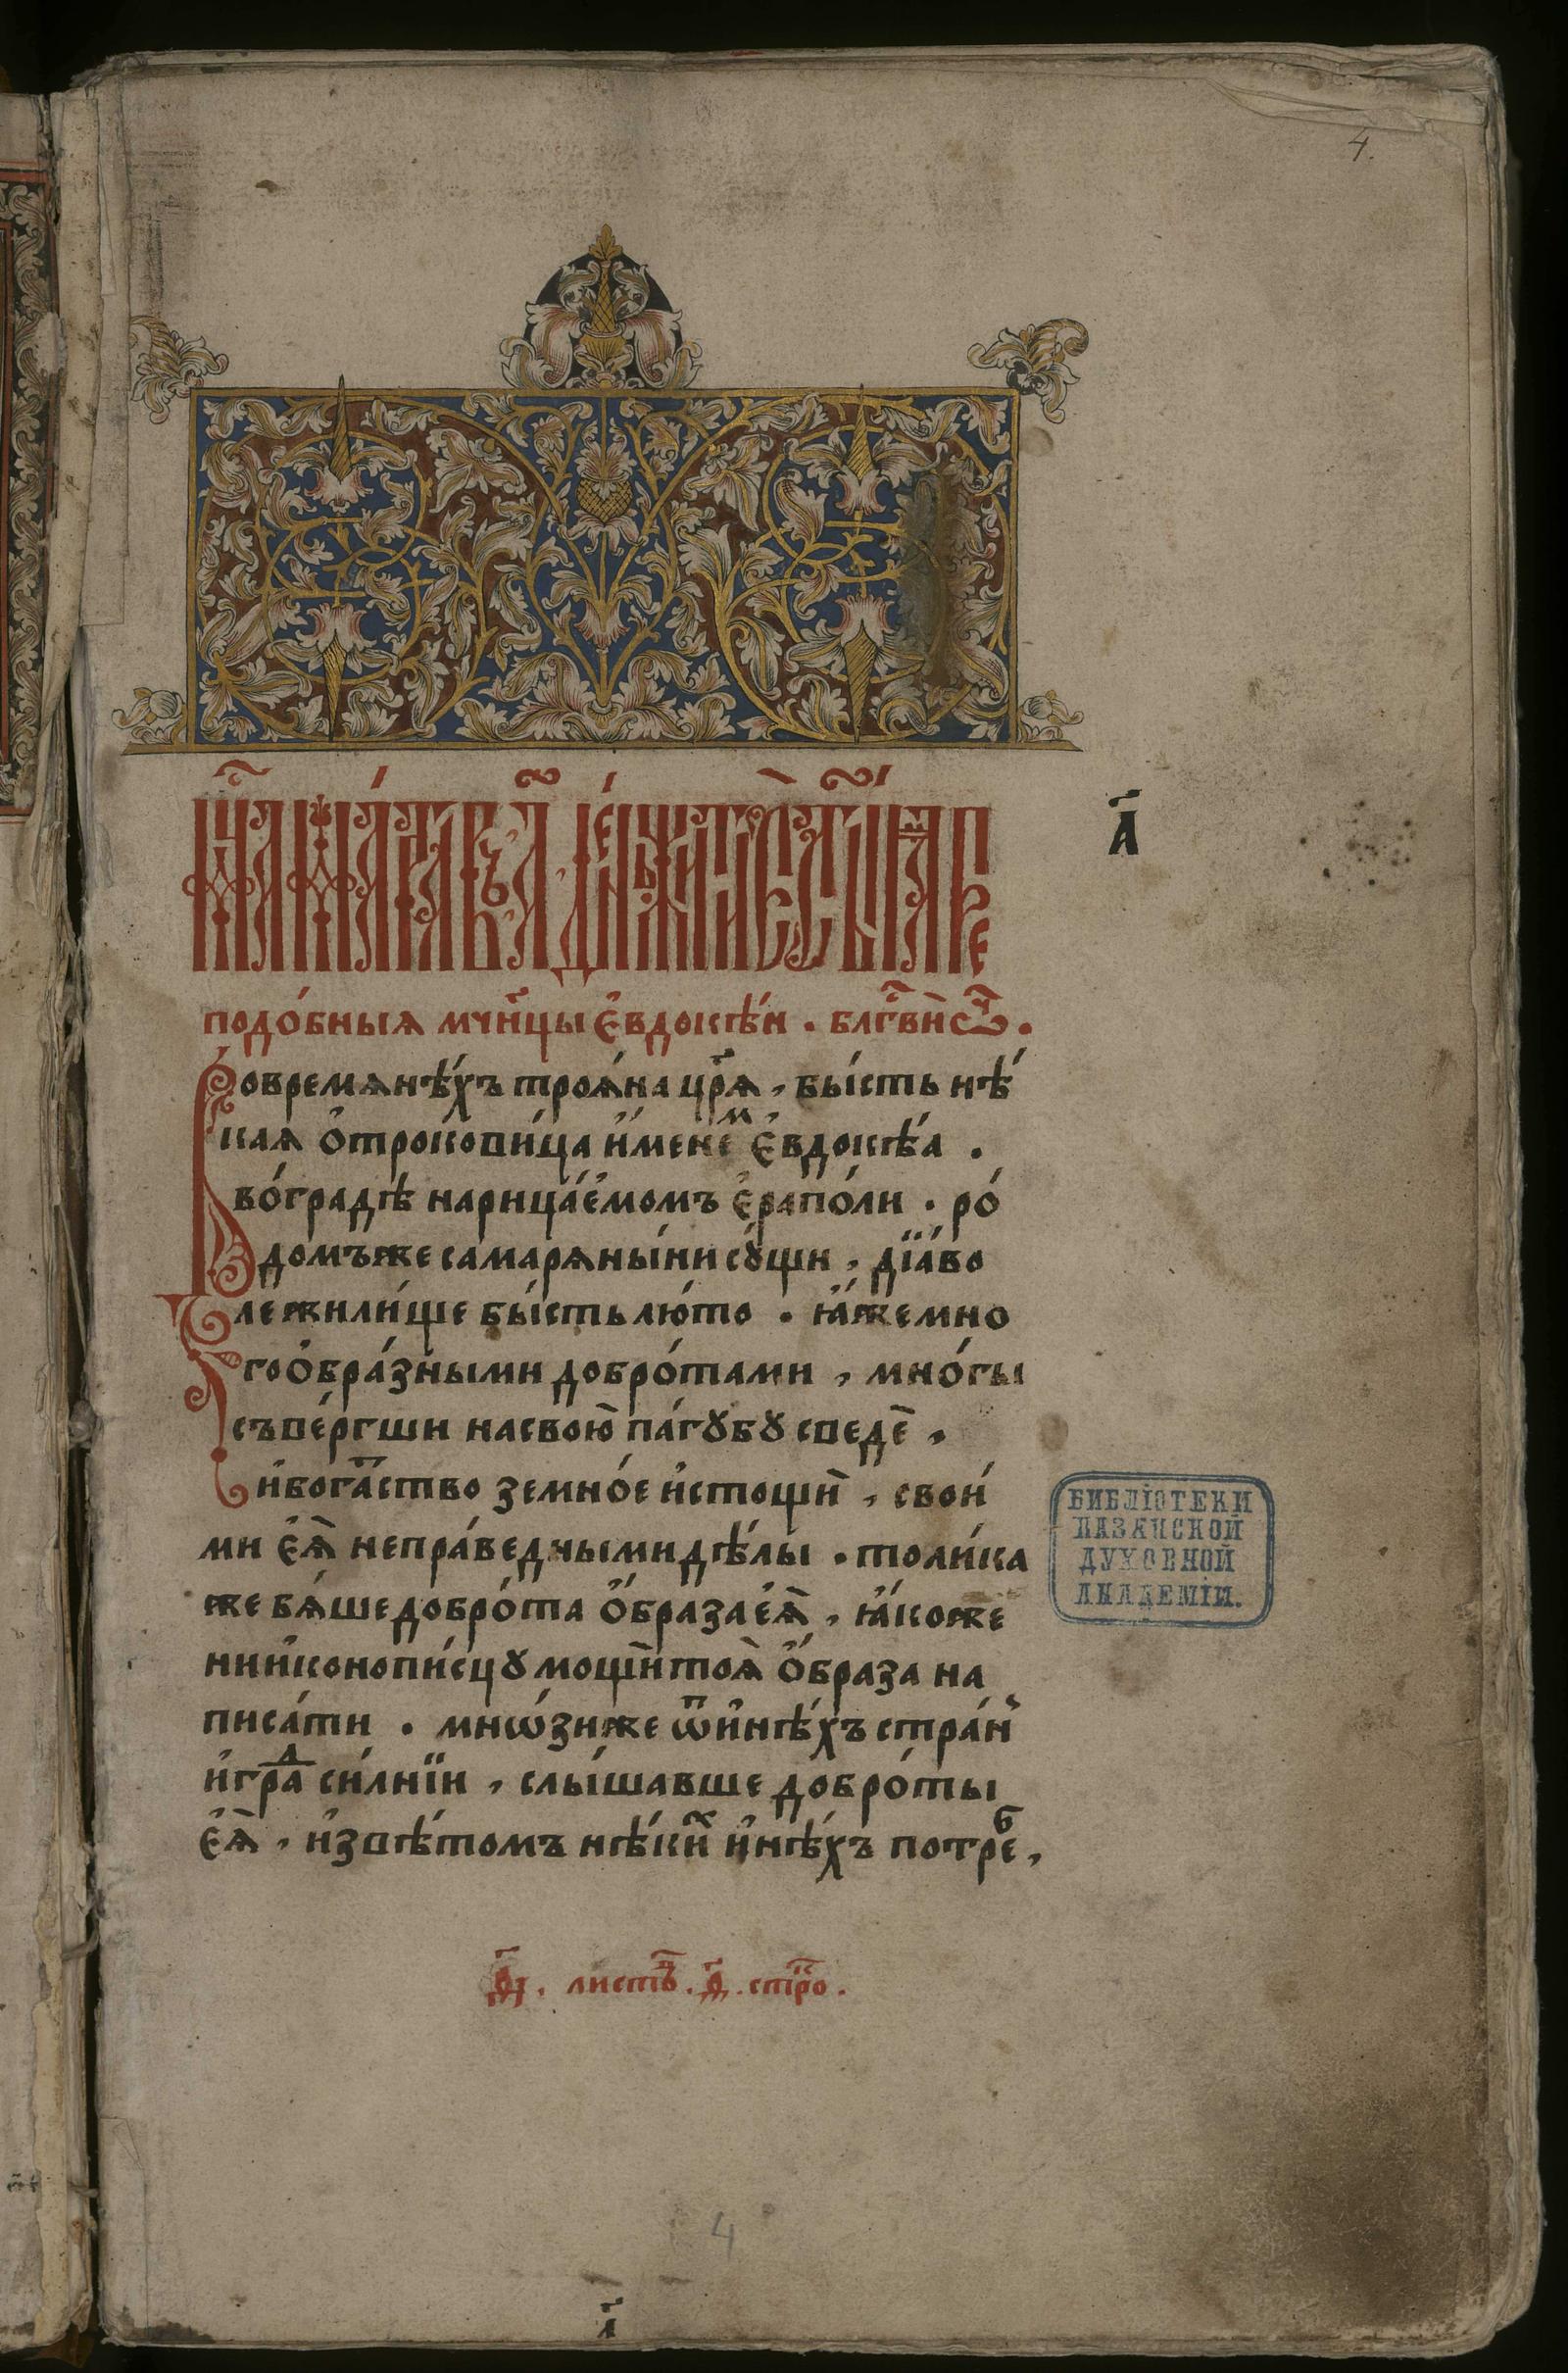 4.
мц҃а ма́рта въ а҃ де́нь житїѐ ст҃ы́ѧ пре
а҃
подо́бныѧ мч҃нцы є҆вдокѣ́и . блг҃вѝ ѿч҃е .
Во времѧ нѣ́хъ троѧ́на цр҃ѧ , бы́сть нѣ́
каѧ ѻ҆трокови́ца и҆́менем є҆вдокѣ́а .
во́ градѣ нарица́е҆момъ є҆рапо́ли . ро́
домъ же самарѧны́ни сꙋ́щи , дїа́во
ле жили́ще бы́сть лю́то . ꙗ҆́же мно
гоѻ҆бра́зными добро́тами , мно́гы
съве́ргши на свою̀ па́гꙋбꙋ сведѐ ,
и҆ бога́тство земно́е и҆стощѝ , свои́
ми є҆ѧ̀ непра́ведными дѣ́лы . толи́ка
же бѧ́ше добро́та ѻ҆́браза еѧ̀ , ꙗ҆́коже
ни и҆конопи́сцꙋ мощѝ тоѧ̀ ѻ҆́браза на
писа́ти . мнѡ́зи же ѿ и҆нѣ́хъ стра́н
и҆ град си́лнїи , слы́шавше добро́ты
є҆ѧ̀ , и҆звѣ́томъ нѣ́ких и҆нѣ́хъ потреб ,
БИБЛІОТЕКИ
КАЗАНСКОЙ
ДУХОВНОЙ
АКАДЕМІИ.
листъ . д҃ . стро .
4
а҃